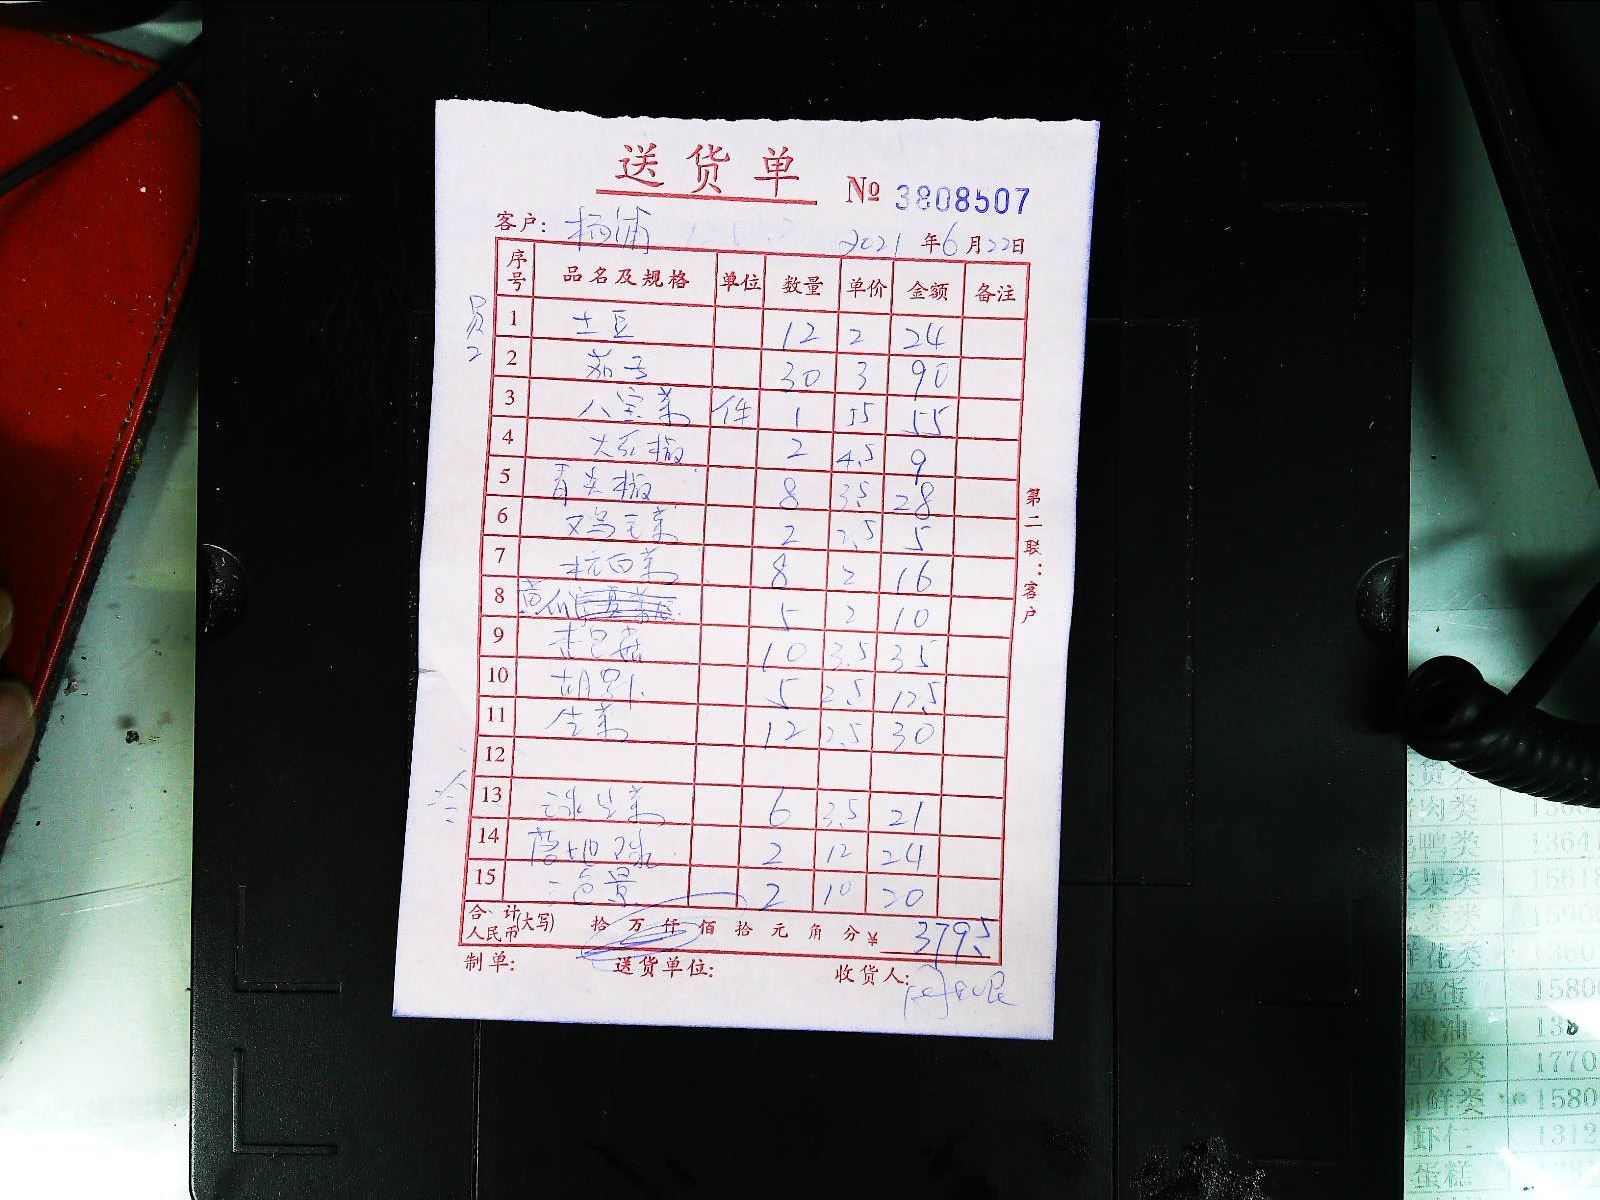 送货单
№ 3808507
客户: 杨浦 2021年6月22日
序号 品名及规格 单位 数量 单价 金额 备注
员2
1 土豆 12 2 24
2 茄子 30 3 90
3 八宝菜 件 1 55 55
4 大红椒 2 4.5 9
5 青尖椒 8 3.5 28
6 鸡毛菜 2 2.5 5
7 杭白菜 8 2 16
8 5 2 10
9 杏鲍菇 10 3.5 35
10 胡萝卜 5 2.5 12.5
11 生菜 12 2.5 30
12
13 球生菜 6 3.5 21
14 2 12 24
15 三色堇 2 10 20
合计人民币(大写) 拾万仟佰拾元角分 ¥ 379.5
制单: 送货单位: 收货人:
第二联:客户
肉类 136
鸭鸭类 1364
果类 1561
菜类 1590
鲜花类 1360
鸡蛋 1580
粮油 138
酒水类 1770
鲜类 1580
虾仁 1312
蛋糕